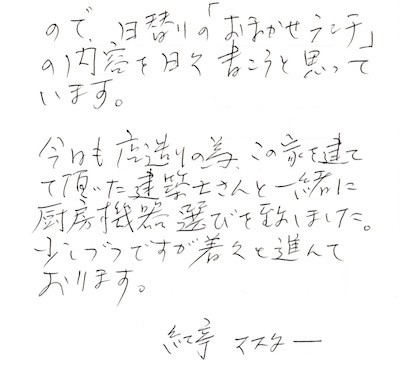 ので、日替りの「おまかせランチ」
の内容を日々書こうと思って
います。
今日も店造りの為、この家を建て
て頂いた建築士さんと一緒に
厨房機器選びを致しました。
少しづつですが着々と進んで
おります。
紅亭 マスター